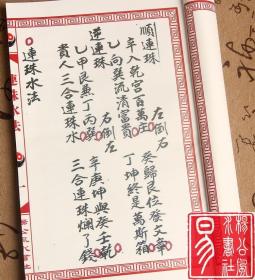 順連珠　左倒右
辛入乾宮百萬庄　癸歸艮位發文章
乙向巽流清富貴　丁坤終是萬斯箱
逆連珠　右倒左
乙甲艮兼丁丙巽　辛庚坤與癸壬乾
貴人三合連珠水　三合連珠爛了錢
連珠水法
連珠水法
易
楊公風
水書社